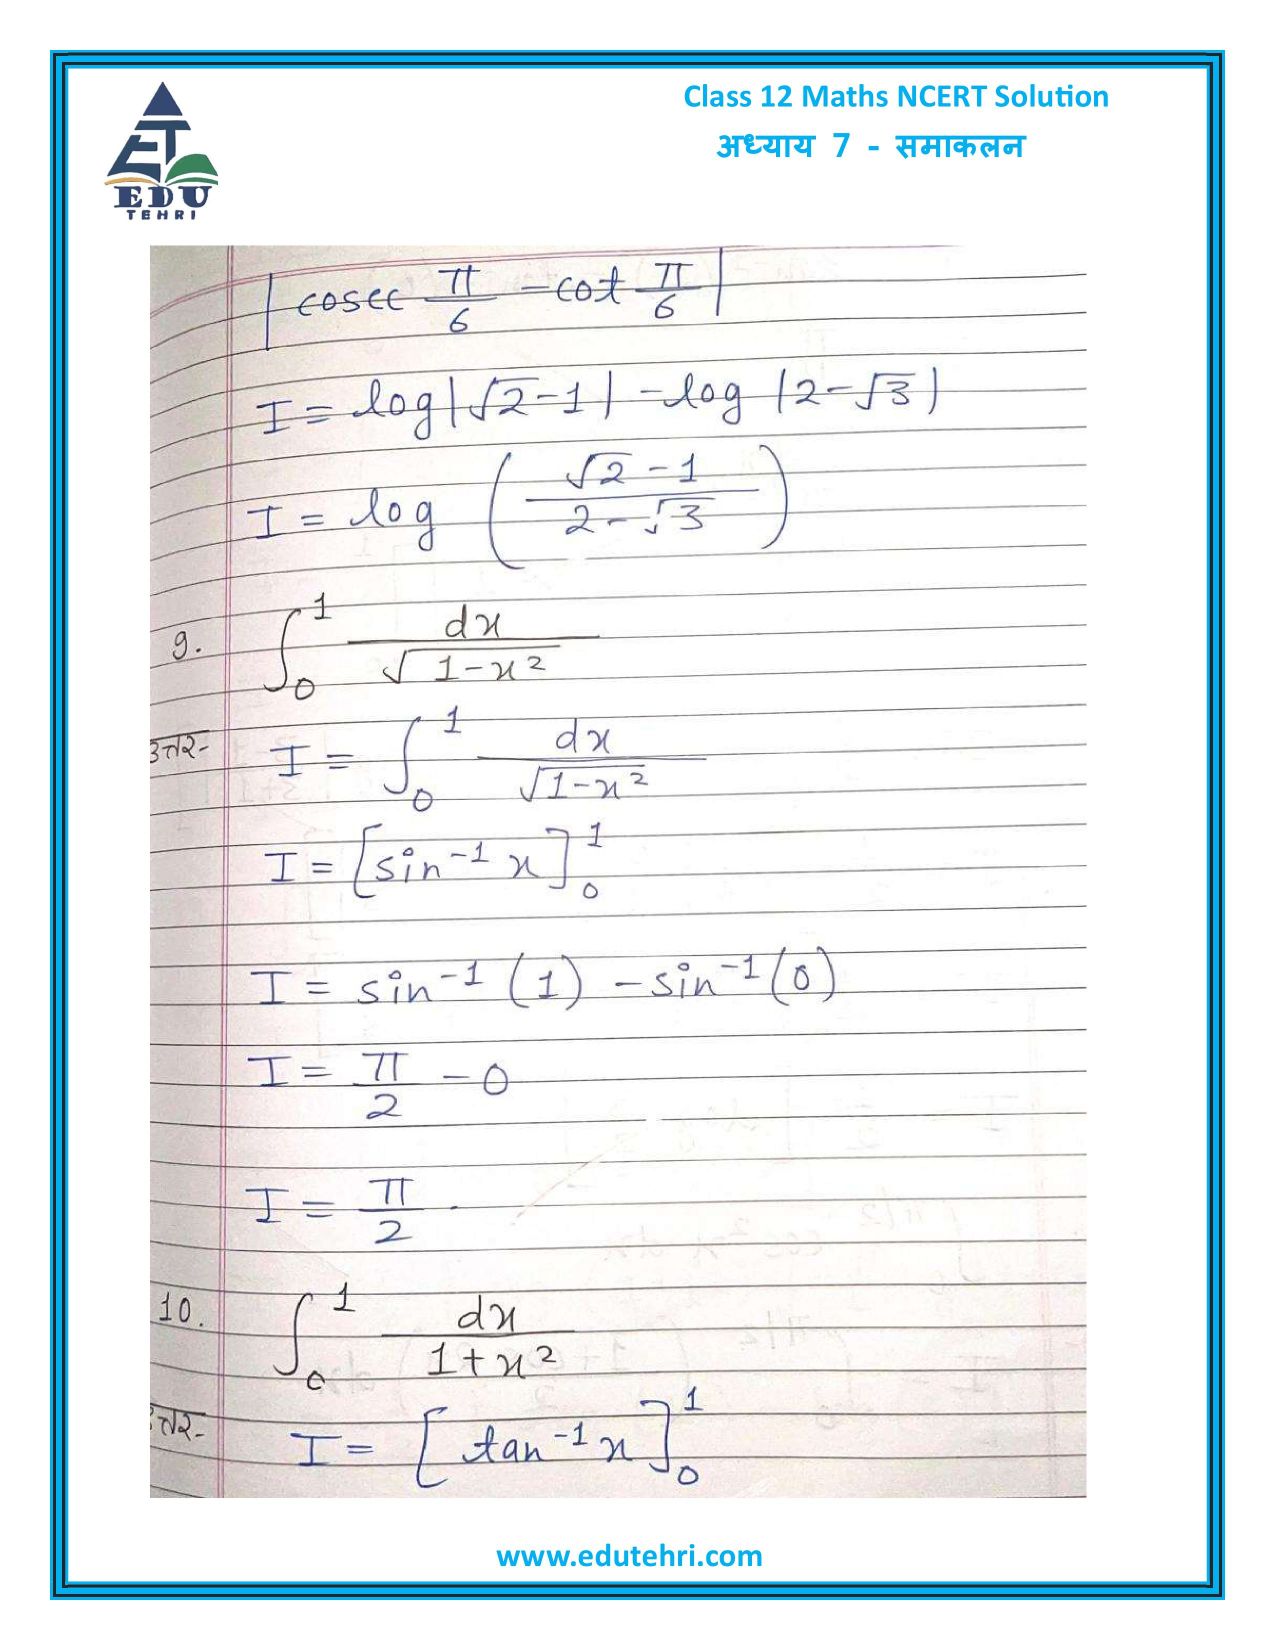 EDU
TEHRI
Class 12 Maths NCERT Solution
अध्याय 7 - समाकलन
| cosec π/6 - cot π/6 |
I = log|√2-1| - log |2-√3|
I = log ( (√2 - 1) / (2-√3) )
9. ∫₀¹ dx / √(1-x²)
उत्तर- I = ∫₀¹ dx / √(1-x²)
I = [sin⁻¹ x]₀¹
I = sin⁻¹ (1) - sin⁻¹ (0)
I = π/2 - 0
I = π/2 .
10. ∫₀¹ dx / (1+x²)
उत्तर- I = [tan⁻¹ x]₀¹
www.edutehri.com